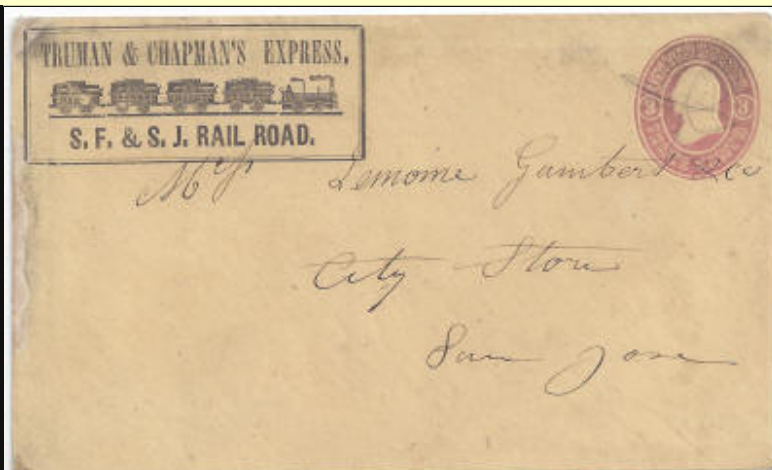 TRUMAN & CHAPMAN'S EXPRESS.
S. F. & S. J. RAIL ROAD.
3 3
Mess Lemoine Gambert & Co
City Store
San Jose